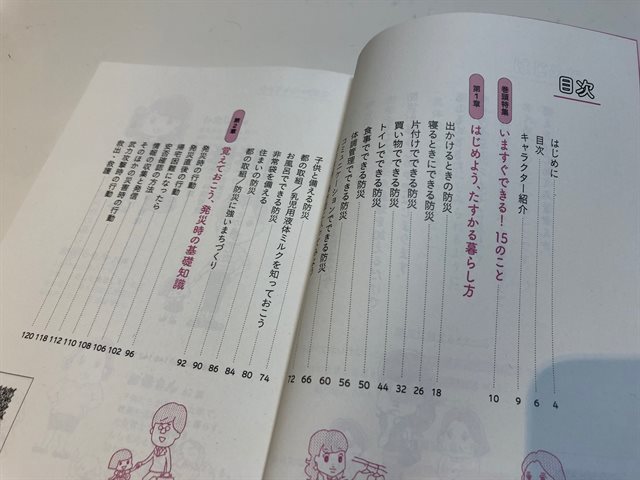 目次
はじめに 4
目次 6
キャラクター紹介 9
巻頭特集
いますぐできる! 15のこと 10
第1章
はじめよう、たすかる暮らし方
出かけるときの防災 18
寝るときにできる防災 26
片付けでできる防災 32
買い物でできる防災 44
トイレでできる防災 50
食事でできる防災 56
体調管理でできる防災 60
コミュニケーションでできる防災 66
72
子供と備える防災 74
都の取組/乳児用液体ミルクを知っておこう 80
お風呂でできる防災 84
非常袋を備える 86
住まいの防災 90
都の取組/防災に強いまちづくり 92
第2章
覚えておこう、発災時の基礎知識
発災時の行動 96
発災直後の行動 102
帰宅困難になったら 106
安否確認の方法 108
情報の収集と発信 110
そのほかの災害時の行動 112
武力攻撃時の行動 118
救出・救護 120